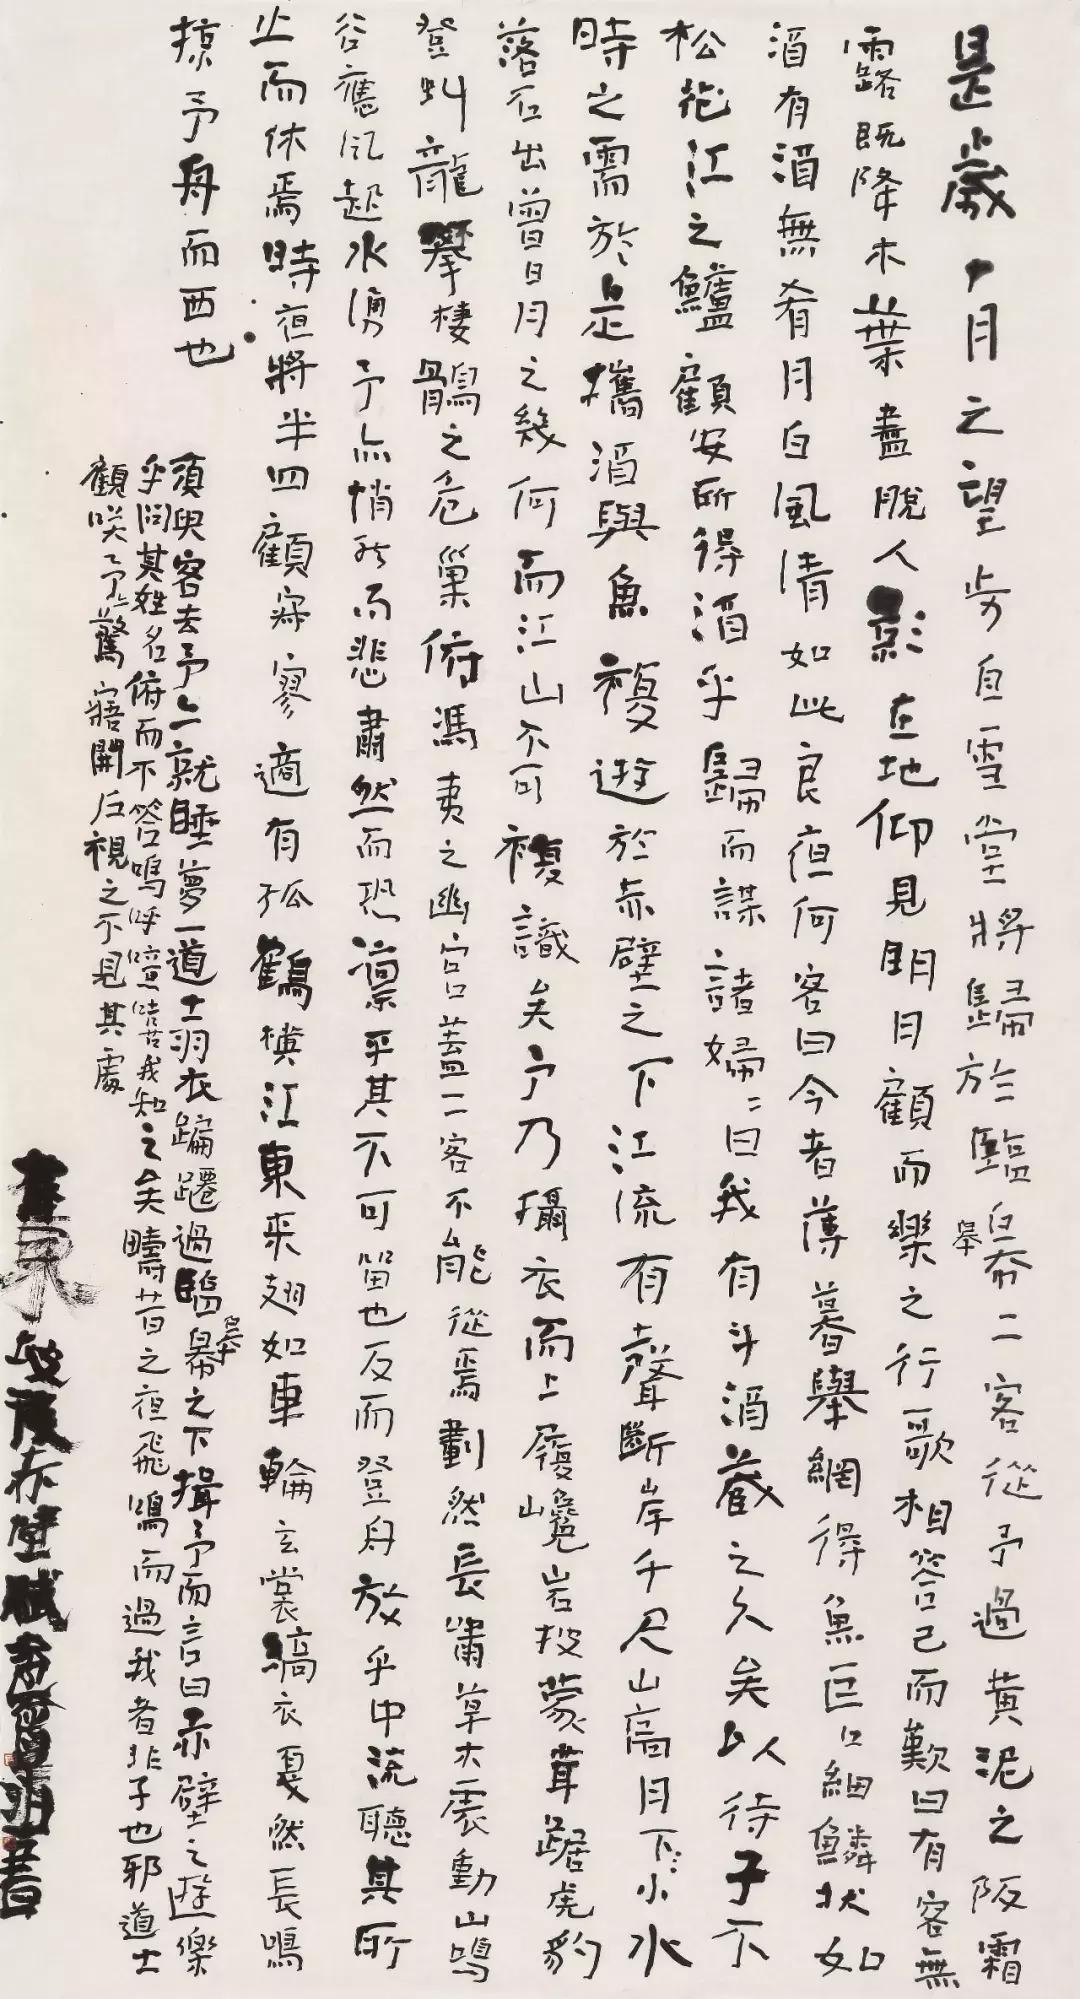 是歲十月之望步自雪堂將歸於臨皋二客從予過黃泥之阪霜
皋
露既降木葉盡脫人影在地仰見明月顧而樂之行歌相答已而歎曰有客無
酒有酒無肴月白風清如此良夜何客曰今者薄暮舉網得魚巨口細鱗狀如
松花江之鱸顧安所得酒乎歸而謀諸婦〻曰我有斗酒藏之久矣以待子不
時之需於是攜酒與魚複遊於赤壁之下江流有聲斷岸千尺山高月下小水
落石出曾日月之幾何而江山不可複識矣予乃攝衣而上履巉岩披蒙茸踞虎豹
登虯龍攀棲鶻之危巢俯馮夷之幽宮蓋二客不能從焉劃然長嘯草木震動山鳴
谷應風起水湧予亦悄然而悲肅然而恐凜乎其不可留也反而登舟放乎中流聽其所
止而休焉時夜將半四顧寂寥適有孤鶴橫江東來翅如車輪玄裳縞衣戛然長鳴
掠予舟而西也
須臾客去予亦就睡夢一道士羽衣蹁躚過臨皋之下揖予而言曰赤壁之遊樂
皋
乎問其姓名俯而不答嗚呼噫嘻我知之矣疇昔之夜飛鳴而過我者非子也邪道士
顧笑予亦驚寤開戶視之不見其處
書東坡後赤壁賦